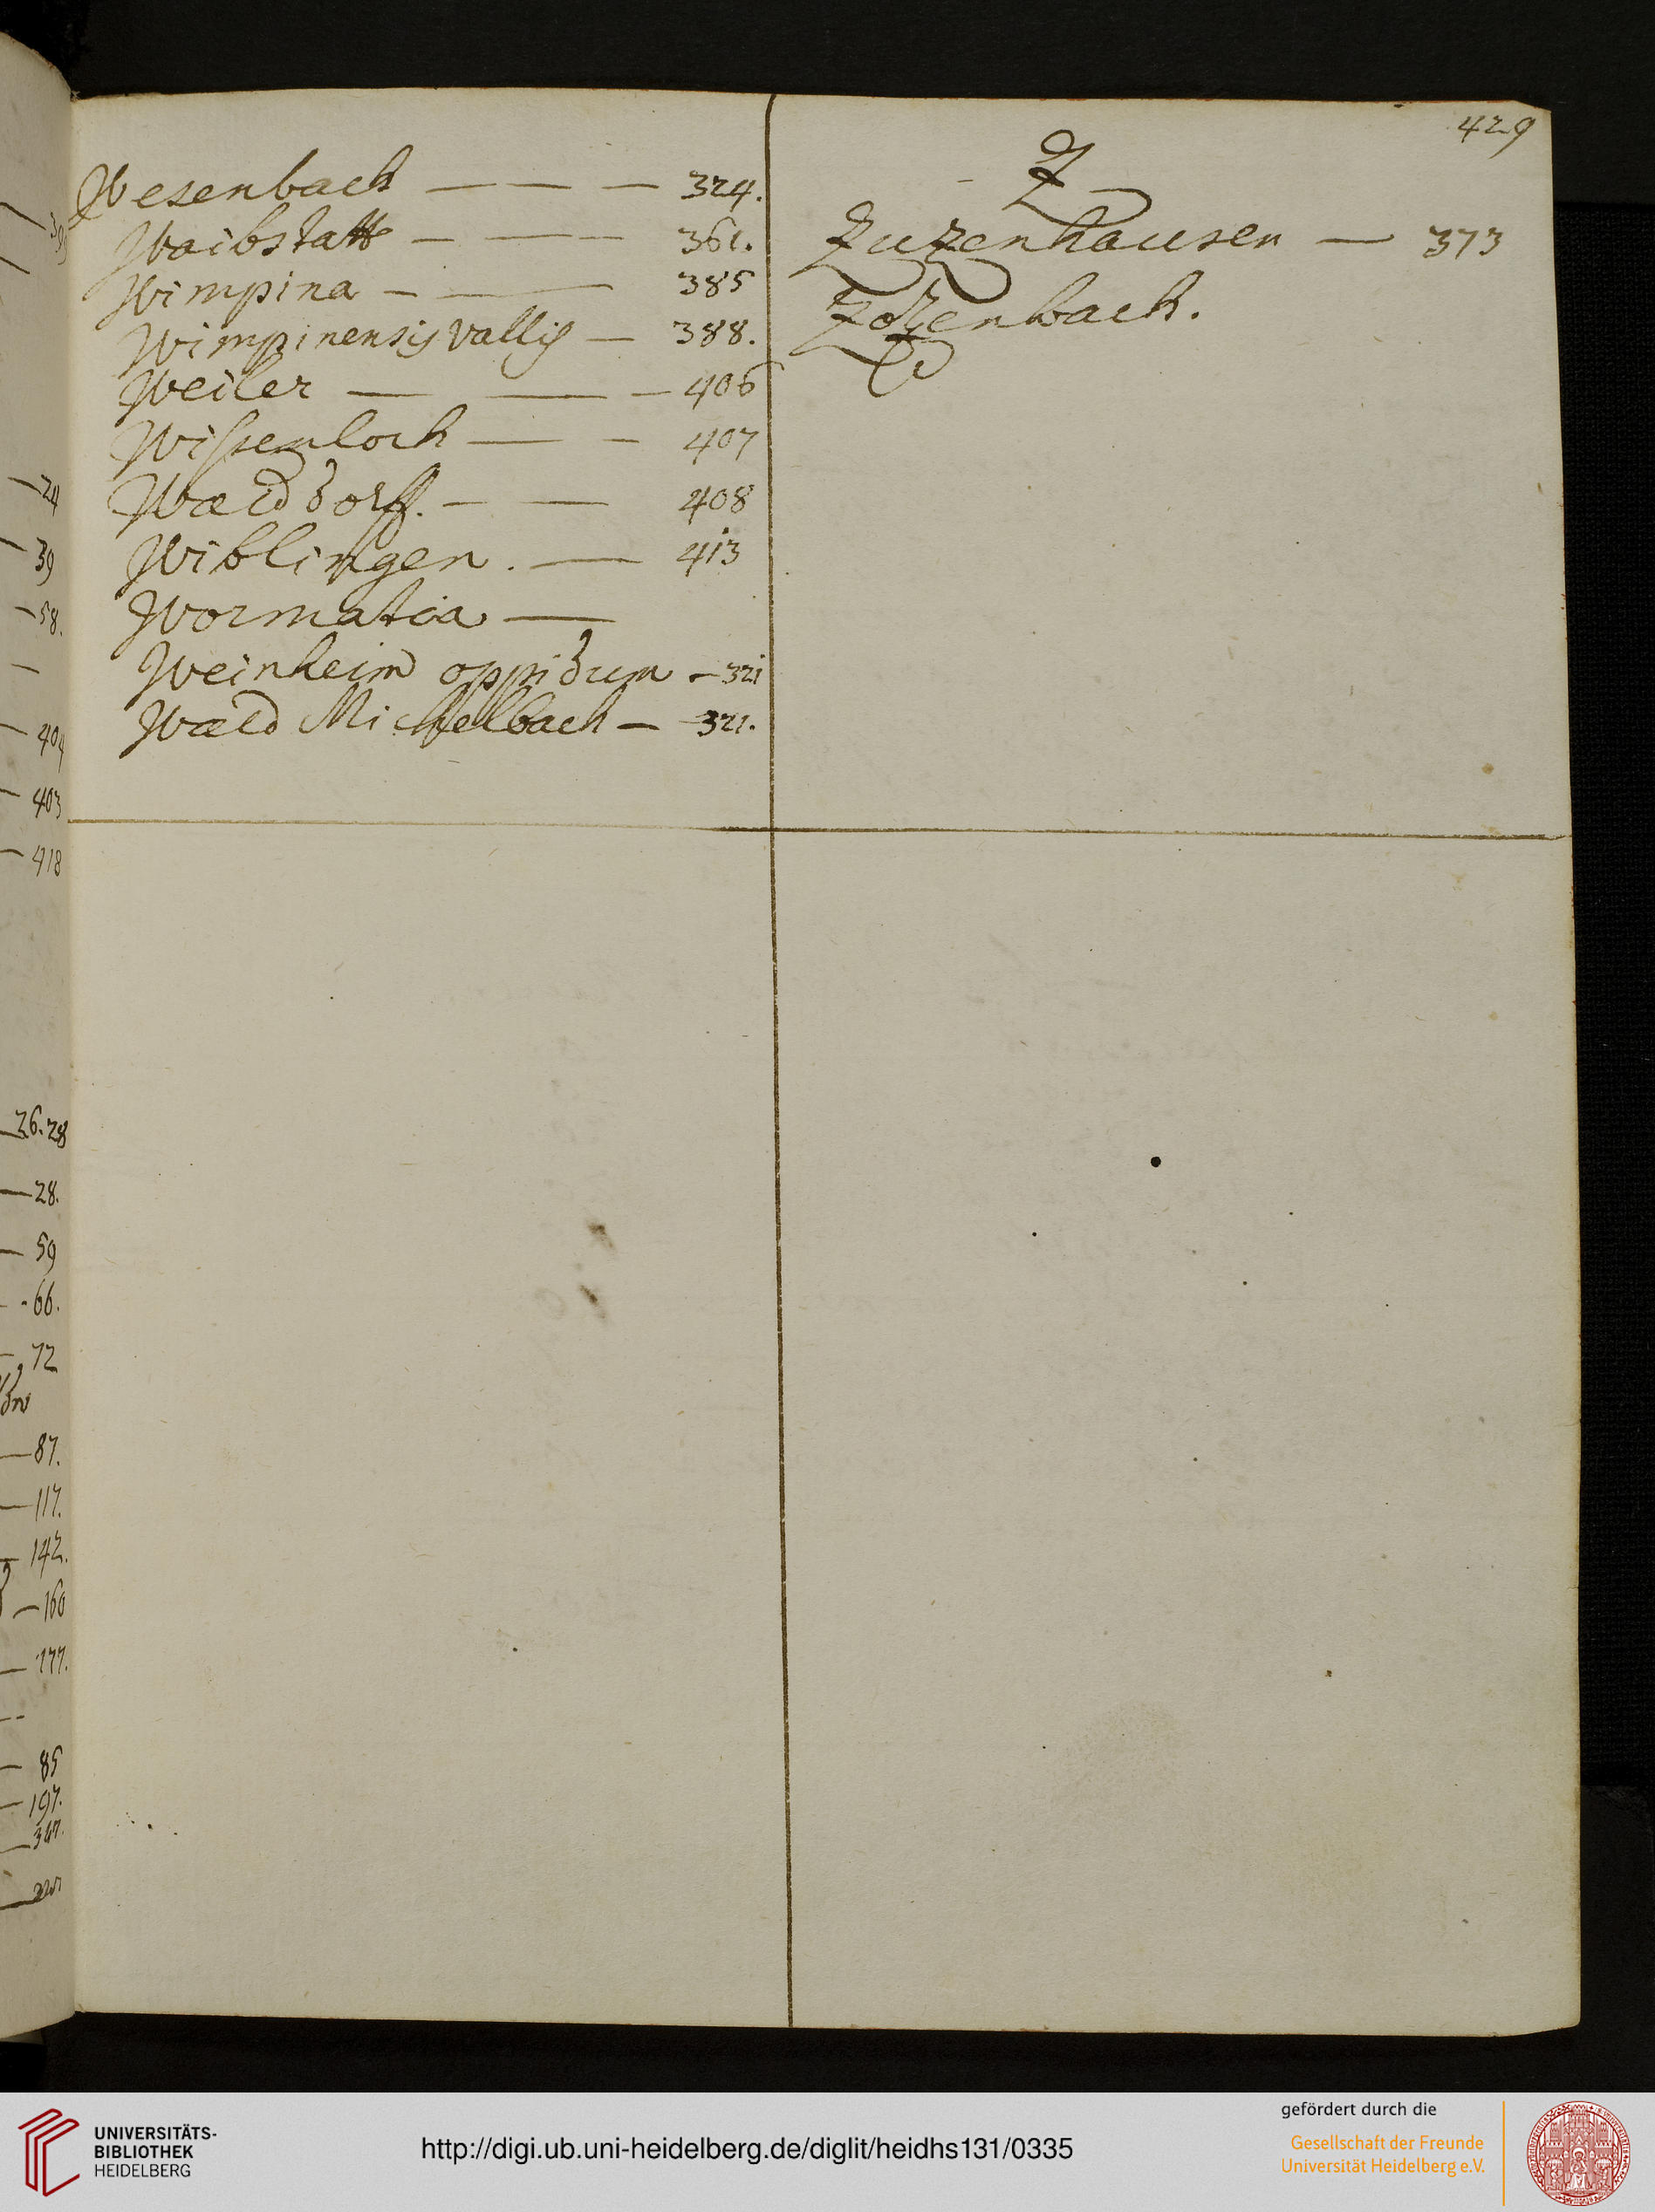 429
Wesenbach — — — 324.
Waibstatt — — — 361.
Wimpina — — 385
Wimpinensis vallis — 388.
Weiler — — — 406
Wissenloch — — 407
Walddorff. — — 408
Wiblingen. — 413
Wormatia —
Weinheim oppidum — 321
Wald Michelbach — 321.
Z
Zuzenhausen — 373
Zozenbach.
24
39
58.
404
403
418
26.28
28.
59
66.
72
87.
117.
142.
160
177.
85
197.
347.
UNIVERSITÄTS-
BIBLIOTHEK
HEIDELBERG
http://digi.ub.uni-heidelberg.de/diglit/heidhs131/0335
gefördert durch die
Gesellschaft der Freunde
Universität Heidelberg e.V.